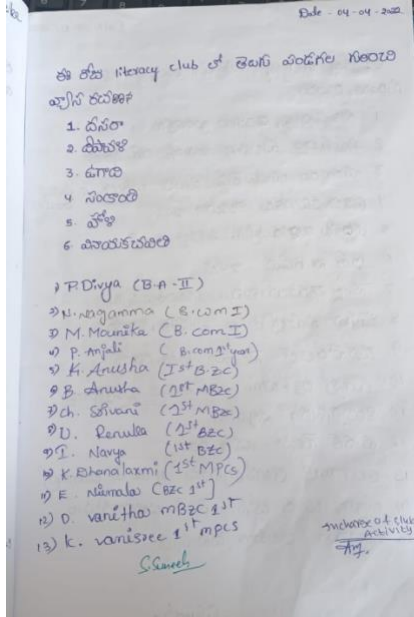 Date - 04-04-2022
ఈ రోజు literacy club లో తెలుగు పండగల గురించి
వ్యాస రచన
1. దసరా
2. దీపావళి
3. ఉగాది
4 సంక్రాంతి
5. హోళి
6 వినాయకచవితి
1) P. Divya (B.A-II)
2) N. Nagamma (B.com I)
3) M. Mounika (B.com I)
4) P. Anjali (B.com 1st year)
5) K. Anusha (Ist B.ZC)
6) B. Anusha (1st MBZC)
7) Ch. Shivani (1st MBZC)
8) D. Renuka (1st BZC)
9) I. Navya (1st BZC)
10) K. Dhanalaxmi (1st MPCs)
11) E. Nirmala (BZC 1st]
12) D. vanitha mBZC 1st
13) K. vanisree 1st mpcs
Incharge of club
Activity
S. Suresh